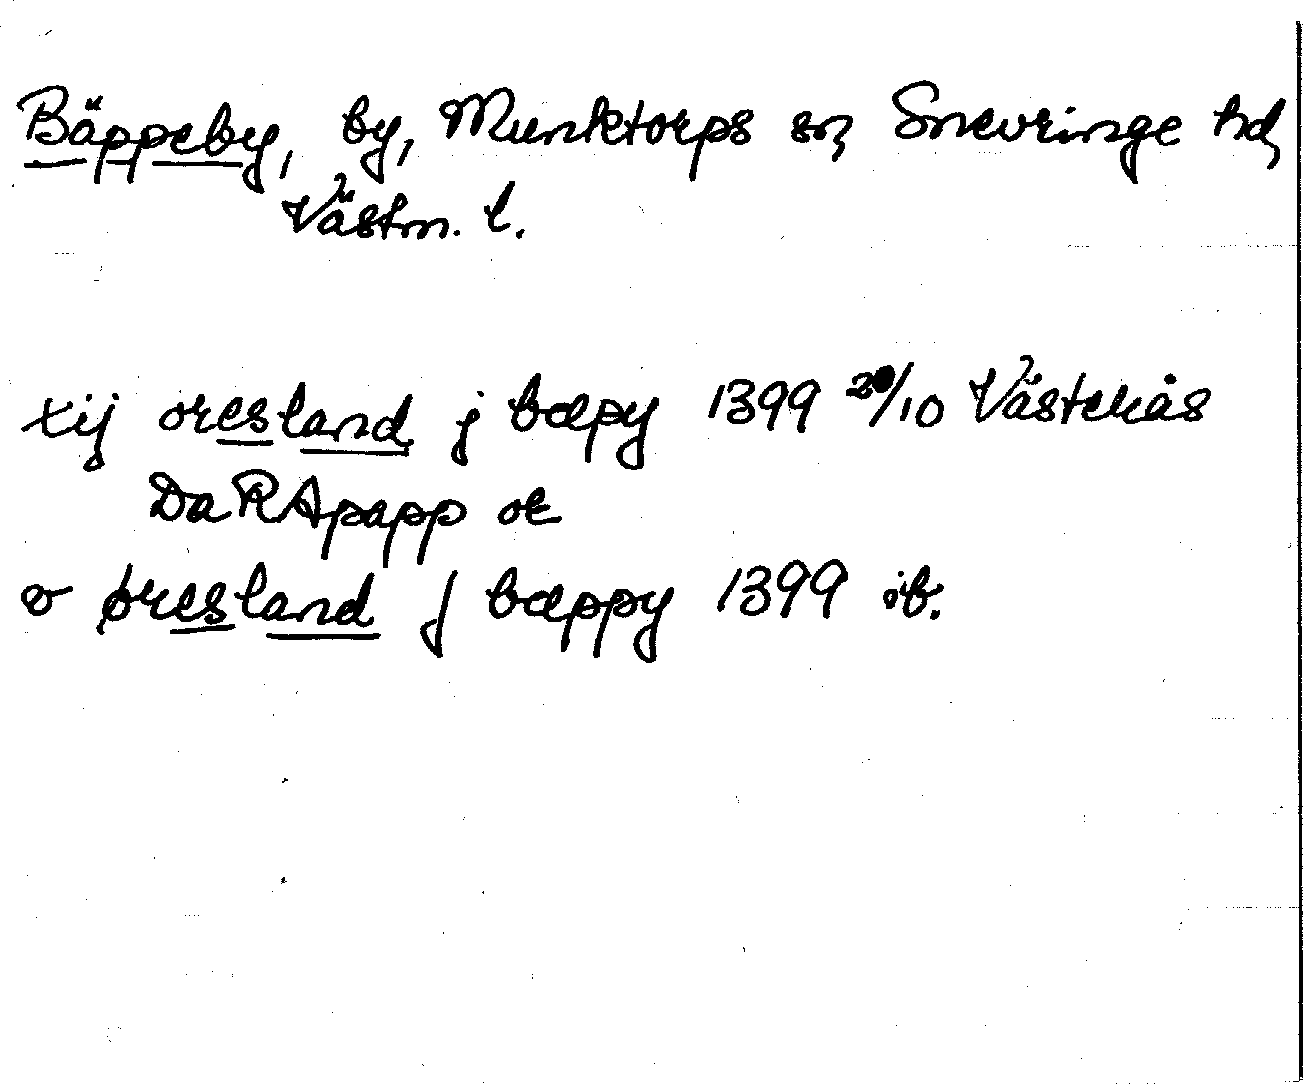 Bäppeby, by, Munktorps sn, Snevringe hd,
Västm. l.
xij oresland j bæpy 1399 20/10 Västerås
Da RApapp or
v øresland j bæppy 1399 ib.